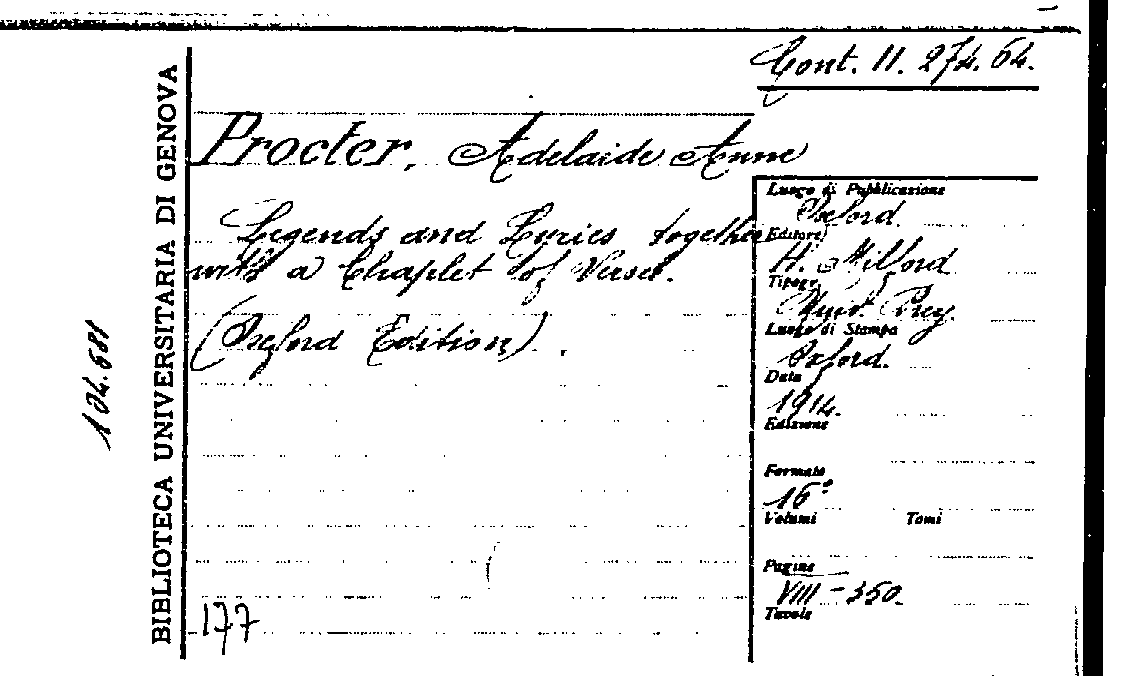 Cont. 11. 274. 64.
Procter, Adelaide Anne
Legends and Lyrics together
with a Chaplet of Verses.
(Oxford Edition).
177
BIBLIOTECA UNIVERSITARIA DI GENOVA
104.681
Luogo di Pubblicazione
Oxford.
Editore
H. Milford
Tipogr.
Luogo di Stampa
Oxford.
Data
1914.
Edizione
Formato
16°
Volumi Tomi
Pagine
VIII - 350.
Tavole